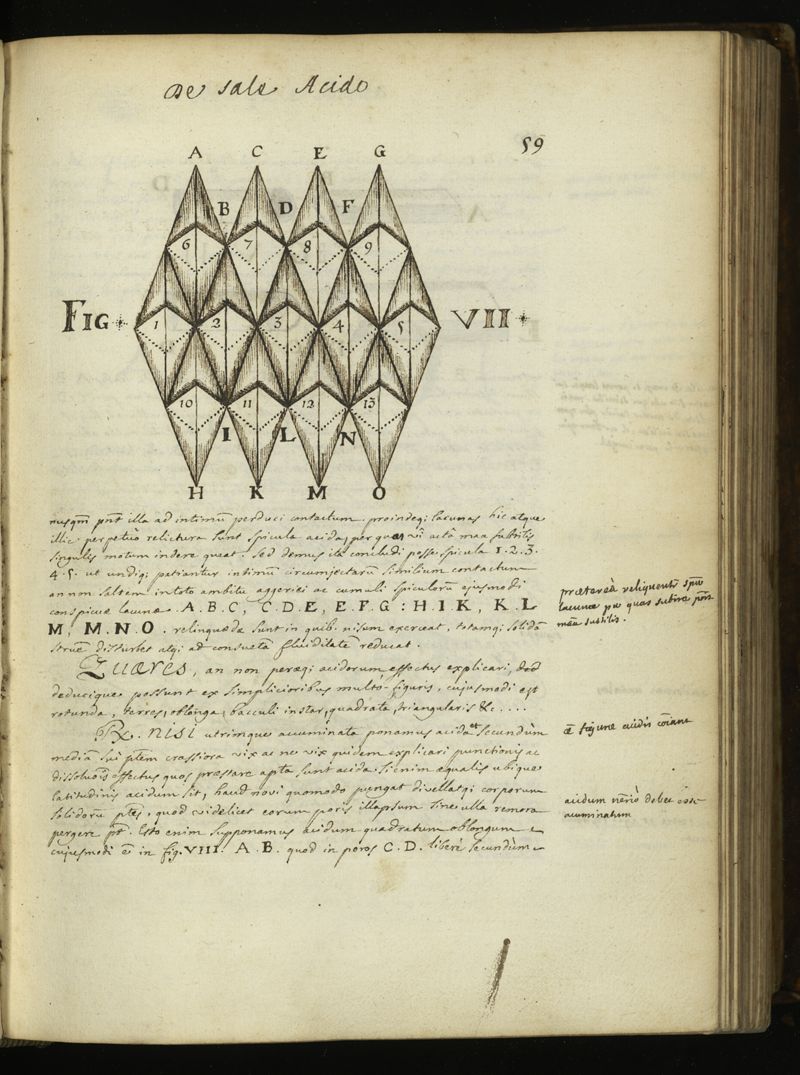 De Sale Acido
59
A C E G
B D F
6 7 8 9
FIG VII
1 2 3 4 5
10 11 12 13
I L N
H K M O
nusqm pnt illa ad intimũ perduci contactum. proindeq; lacunas hic atque
illic perpetuò relictura sunt spicula acida, per quas vi actâ maa subtilis
singulis motum indere queat. Sed demus ita concludi posse spicula 1. 2. 3.
4. 5. ut undiq; patiantur intimũ circumjectarũ similium contactum
an non saltem in toto ambitu aggeriei ac cumuli spiculorũ ejusmodi
conspicuæ lacunæ A. B. C, C. D. E, E. F. G : H. I. K, K. L
M, M. N. O. relinquẽdæ sunt in quib. nisum exerceat, totamq; solidã
struẽ disturbet atq; ad consuetã fluiditatẽ reducat.
præterea reliquentr
lacunæ per quas subire
maa subtilis.
Quæres, an non peræqi acidorum effectus explicari,
deducique possunt ex simplicioribus multò figuris, cujusmodi est
rotunda, teres, oblonga, bacculi instar, quadrata, triangularis &c ....
Rx. nisi utrimque accuminata ponamus acida et secundùm
mediã sui ptem crassiora vix ac ne vix quidem explicari punctionis ac
dissolũois effectus quos præstare apta sunt acida. si enim æqualis ubique
latitudinis acidum sit, haud novi quomodo pungat divellatqi corporum
solidorũ ptes, quod videlicet eorum poris illapsum sine ulla remora
pergere pt. Esto enim supponamus acidum quadratum oblongum
cujusmodi ẽ in fig. VIII. A. B. quod in poros C. D. liberè secundùm
acidum nẽriò debet esse
acuminatum